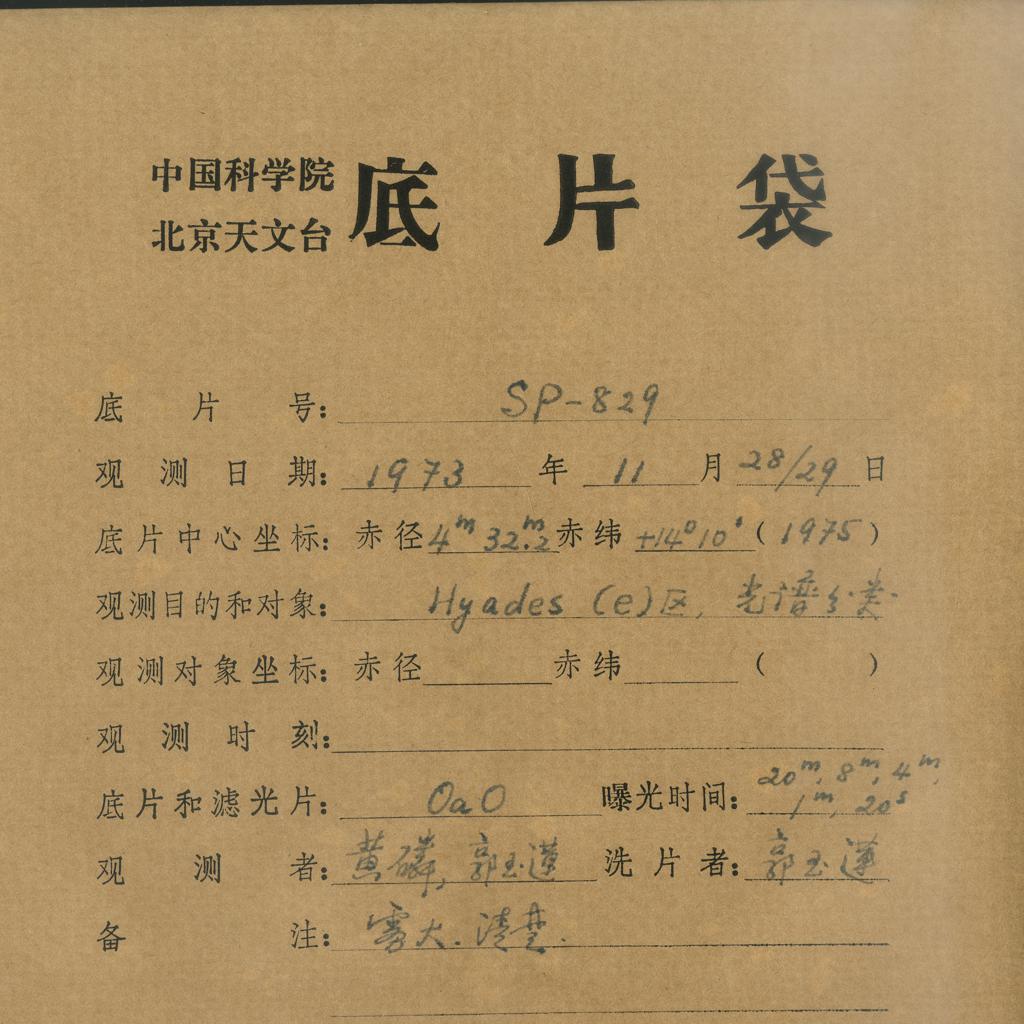 中国科学院
北京天文台
底片袋
底片号: SP-829
观测日期: 1973 年 11 月 28/29 日
底片中心坐标: 赤径 4ᵐ 32.ᵐ2 赤纬 +14⁰10′ (1975)
观测目的和对象: Hyades (e)区, 光谱分类.
观测对象坐标: 赤径 赤纬 ( )
观测时刻:
底片和滤光片: OaO 曝光时间: 20ᵐ, 8ᵐ, 4ᵐ,
1ᵐ, 20ˢ
观测者: 黄磷, 郭玉莲 洗片者: 郭玉莲
备注: 雾大. 清楚.